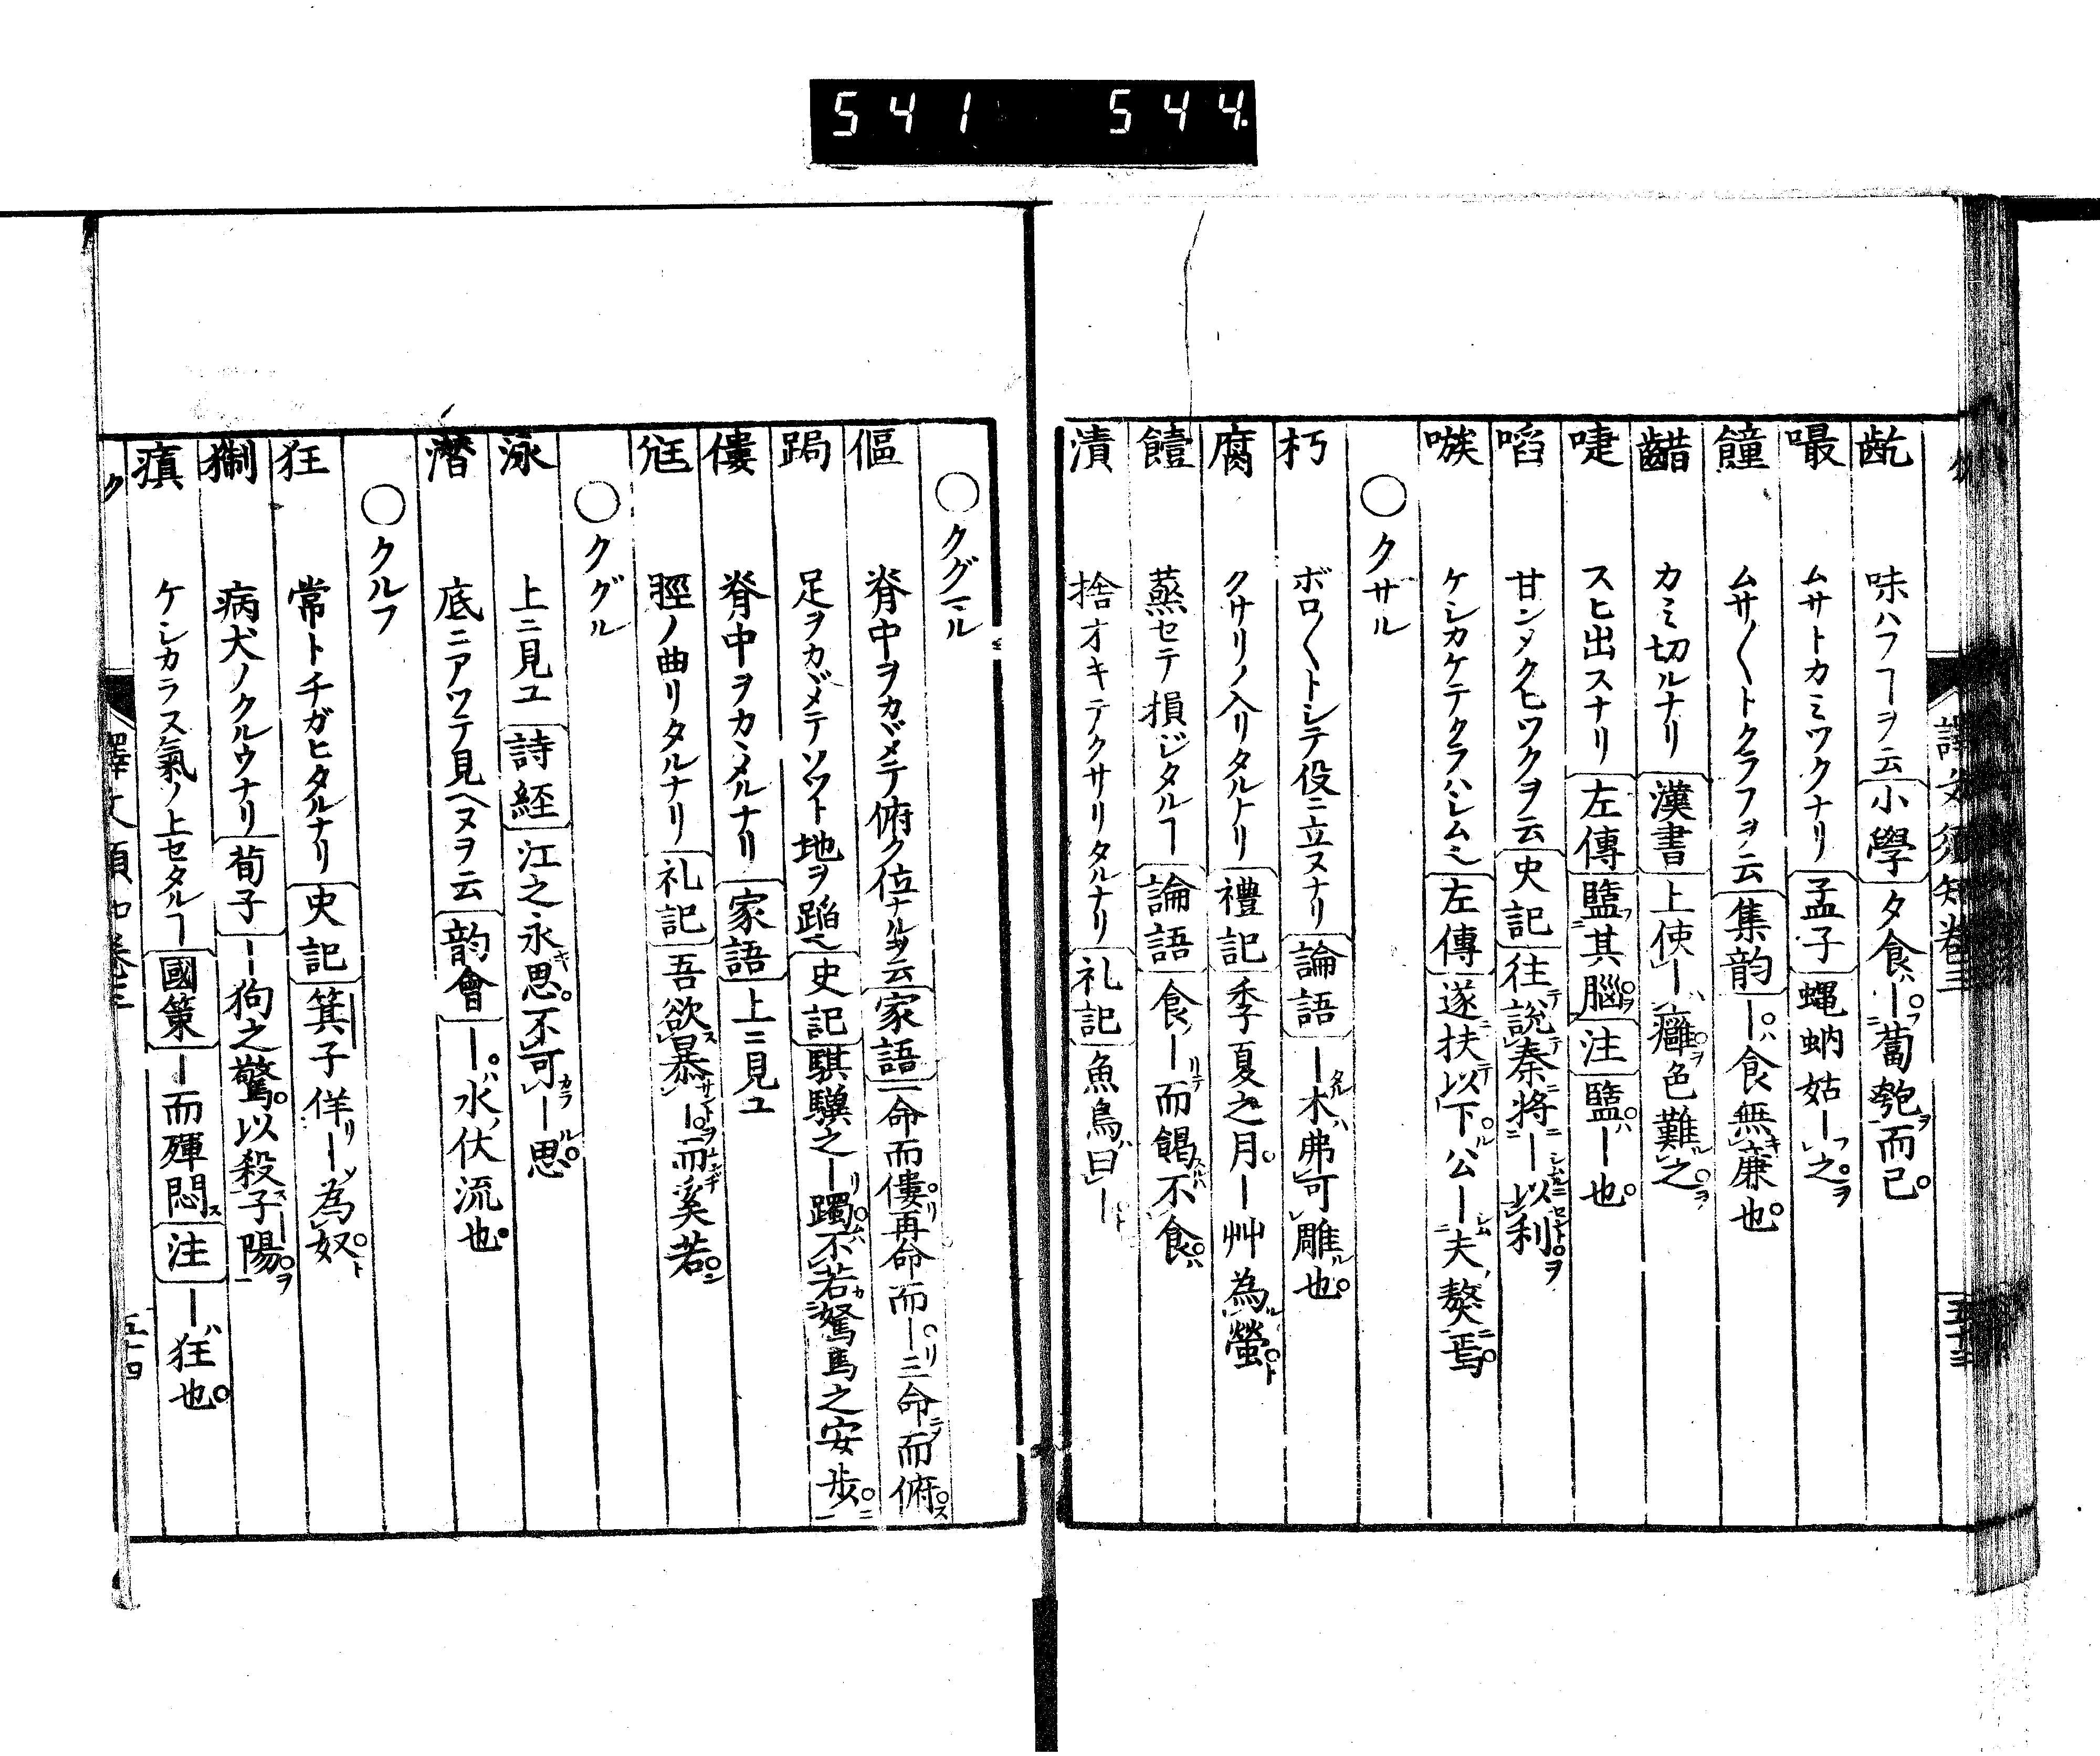 541 544
譯文須知卷三 五十三
齕 味ハフヿヲ云 小學 夕食ハ―フ二蔔匏ヲ一而已
嘬 ムサトカミツクナリ 孟子 蝿蚋姑―フレ之ヲ
饐 ムサ〱トクラフヲ云 集韵 ―ハ食無キレ廉也
齰 カミ切ルナリ 漢書 上使レ―レ癰ヲ色難ルレ之ヲ
啑 スヒ出スナリ 左傳 盬フ二其腦ヲ一 注 盬ハ―也
啗 甘ンメクヒツクヲ云 史記 往テ說テレ秦ニ將ニ―以レ利ヲ
嗾 ケシカケテクラハシムヘ 左傳 遂ニ扶テ以下ルレ公―シム二夫ノ獒ニ一焉
○クサル
朽 ボロ〱トシテ役ニ立ヌナリ 論語 ―タル木ハ弗レ可レ雕ル也
腐 クサリノ入リタルナリ 禮記 季夏之月―艸為ルレ螢ト
饐 蒸セテ損ジタルヿ 論語 食ノ―リテ而餲スルハ不レ食ハ
漬 捨オキテクサリタルナリ 礼記 魚鳥ハ曰レ―ト
○クグマル
傴 脊中ヲカヾメテ俯ク位ナルヲ云 家語 一命而僂リ再命而―リ三命ニシテ而俯ス
跼 足ヲカヾメテソツト地ヲ蹈ヘ 史記 騏驥之―リ躅ハ不レ若カ二駑馬之安步ニ一
僂 脊中ヲカヾメルナリ 家語 上ニ見ユ
尩 脛ノ曲リタルナリ 礼記 吾欲スレ暴サント―ヲ而奚若ン
○クグル
泳 上ニ見ユ 詩經 江之永キ思不レ可カラレ―ル思
潛 底ニアツテ見ヘヌヲ云 韵會 ―ハ水ノ伏流也
○クルフ
狂 常トチガヒタルナリ 史記 箕子佯リ―メ為レ奴ト
猘 病犬ノクルウナリ 荀子 ―狗之驚以殺ス二子陽ヲ一
瘨 ケシカラス氣ノ上セタルヿ 國策 ―而殫悶ス 注 ―ハ狂也
ク 譯文須知卷三 五十四